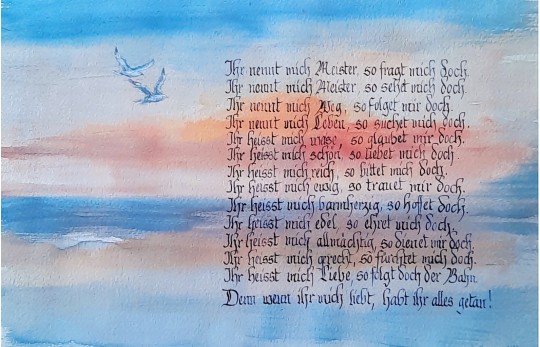 Ihr nennt mich Meister, so fragt mich doch.
Ihr nennt mich Meister, so sehet mich doch.
Ihr nennt mich Weg, so folget mir doch.
Ihr nennt mich Leben, so suchet mich doch.
Ihr heisst mich wase, so glaubet mir doch.
Ihr heisst mich schön, so liebet mich doch.
Ihr heisst mich reich, so bittet mich doch.
Ihr heisst mich ewig, so trauet mir doch.
Ihr heisst mich barmherzig, so hoffet doch.
Ihr heisst mich edel, so ehret mich doch.
Ihr heisst mich allmächtig, so dienet mir doch.
Ihr heisst mich gerecht, so fürchtet mich doch.
Ihr heisst mich Liebe, so folgt doch der Bahn
Denn wenn ihr mich liebt, habt ihr alles getan!